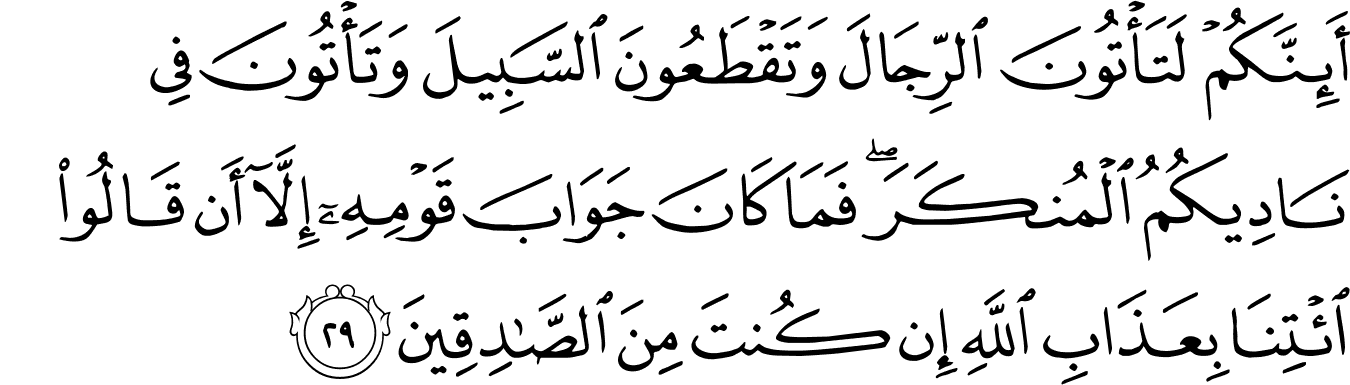 أَئِنَّكُمْ لَتَأْتُونَ ٱلرِّجَالَ وَتَقْطَعُونَ ٱلسَّبِيلَ وَتَأْتُونَ فِى
نَادِيكُمُ ٱلْمُنكَرَ ۖ فَمَا كَانَ جَوَابَ قَوْمِهِۦٓ إِلَّآ أَن قَالُوا۟
ٱئْتِنَا بِعَذَابِ ٱللَّهِ إِن كُنتَ مِنَ ٱلصَّـٰدِقِينَ ٢٩